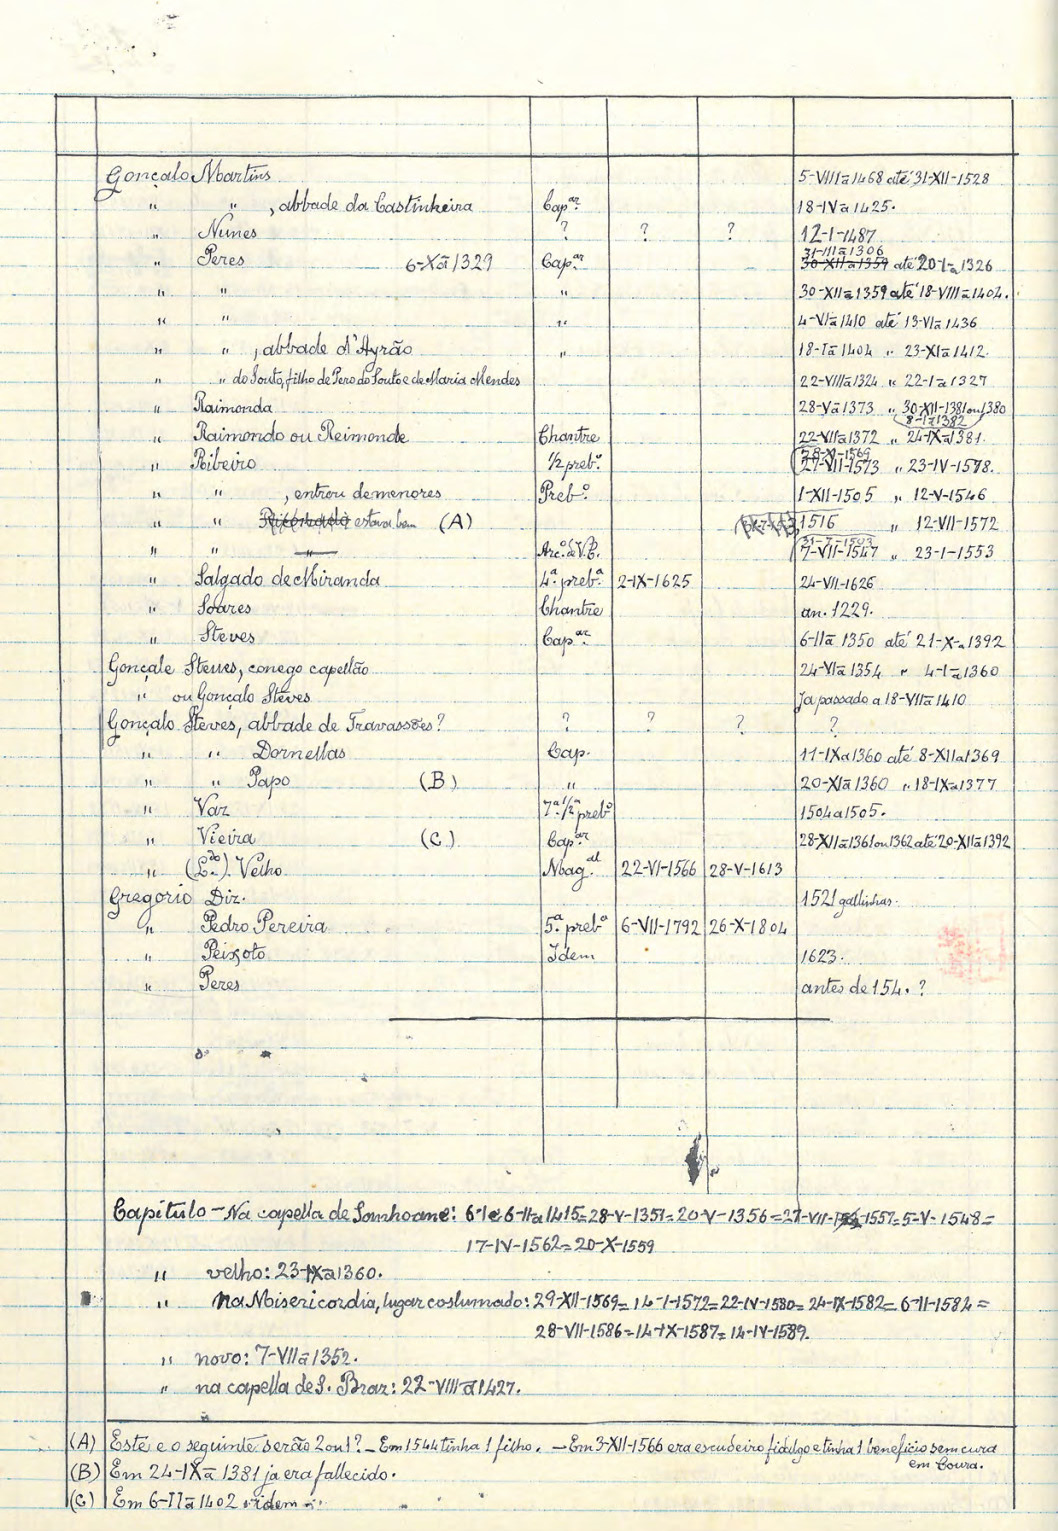 Gonçalo Martins 5-VIII-1468 até 31-XII-1528
" " , abbade da Castinheira Cap.ar 18-IV-a 1425.
" Nunes ? ? ? 12-I-1487
31-III a 1306
" Peres 6-X-a 1329 Cap.ar 30-XII a 1359 até 20-I-a 1326
" " " 30-XII a 1359 até 18-VIII a 1404.
" " " 4-VI a 1410 até 13-VI a 1436
" " , abbade d'Ayrão " 18-I a 1404 " 23-XI a 1412.
" " do Souto, filho de Pero do Souto e de Maria Mendes 22-VIII a 1324 " 22-I-a 1327
" Raimonda 28-V a 1373 " 30-XII-1381 ou 1380
8-I a 1382
" Raimondo ou Reimonde Chantre 22-VII a 1372 " 24-IX a 1381.
28-XI-1569
" Ribeiro 1/2 preb.o 27-VII-1573 " 23-IV-1578.
" " , entrou de menores Preb.o 1-XII-1505 " 12-V-1546
" " estava bem (A) 1516 " 12-VII-1572
31-7-1503
" " Arc.o de V.C. 7-VII-1547 " 23-I-1553
" Salgado de Miranda 4.a preb.a 2-IX-1625 24-VII-1626
" Soares Chantre an. 1229.
" Steves Cap.ar 6-II a 1350 até 21-X-a 1392
Gonçale Steves, conego capellão 24-VI a 1354 " 4-I-a 1360
" ou Gonçalo Steves Ja passado a 18-VII a 1410
Gonçalo Steves, abbade de Travassões? ? ? ? ?
" " Dornellas Cap. 11-IX a 1360 até 8-XII a 1369
" " Papo (B) " 20-XI a 1360 " 18-IX-a 1377
" Vaz 7.a 1/2 preb.o 1504 a 1505.
" Vieira (C) Cap.ar 28-XII a 1361 ou 1362 até 20-XII a 1392
" (L.do) Velho Mag.al 22-VI-1566 28-V-1613
Gregorio Diz. 1521 gallinhas.
" Pedro Pereira 5.a preb.a 6-VII-1792 26-X-1804
" Peixoto Idem 1623.
" Peres antes de 154. ?
Capitulo - Na capella de Somhoane: 6-I e 6-II a 1415 = 28-V-1351 = 20-V-1356 = 27-VII-1557 = 5-V-1548 =
17-IV-1562 = 20-X-1559
" velho: 23-IX a 1360.
" na Misericordia, lugar costumado: 29-XII-1569 = 14-I-1572 = 22-IV-1580 = 24-IX-1582 = 6-II-1584 =
28-VII-1586 = 14-IX-1587 = 14-IV-1589.
" novo: 7-VII a 1352.
" na capella de S. Braz: 22-VIII a 1427.
(A) Este e o seguinte serão 2 ou 1? - Em 1544 tinha 1 filho. - Em 3-XII-1566 era escudeiro fidalgo e tinha 1 beneficio sem cura
em Coura.
(B) Em 24-IX a 1381 ja era fallecido.
(C) Em 6-II a 1402 idem